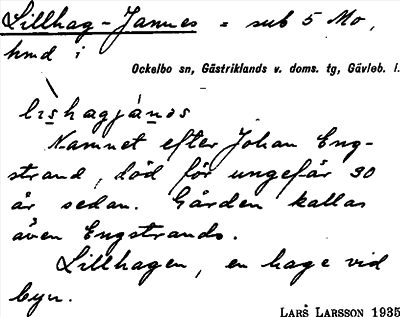 Lillhag-Jannes = sub 5 Mo,
hmd i
Ockelbo sn, Gästriklands v. doms. tg, Gävleb. l.
lıshagjános
Namnet efter Johan Eng-
strand, död för ungefär 30
år sedan. Gården kallas
även Engstrands.
Lillhagen, en hage vid
byn.
LARS LARSSON 1935